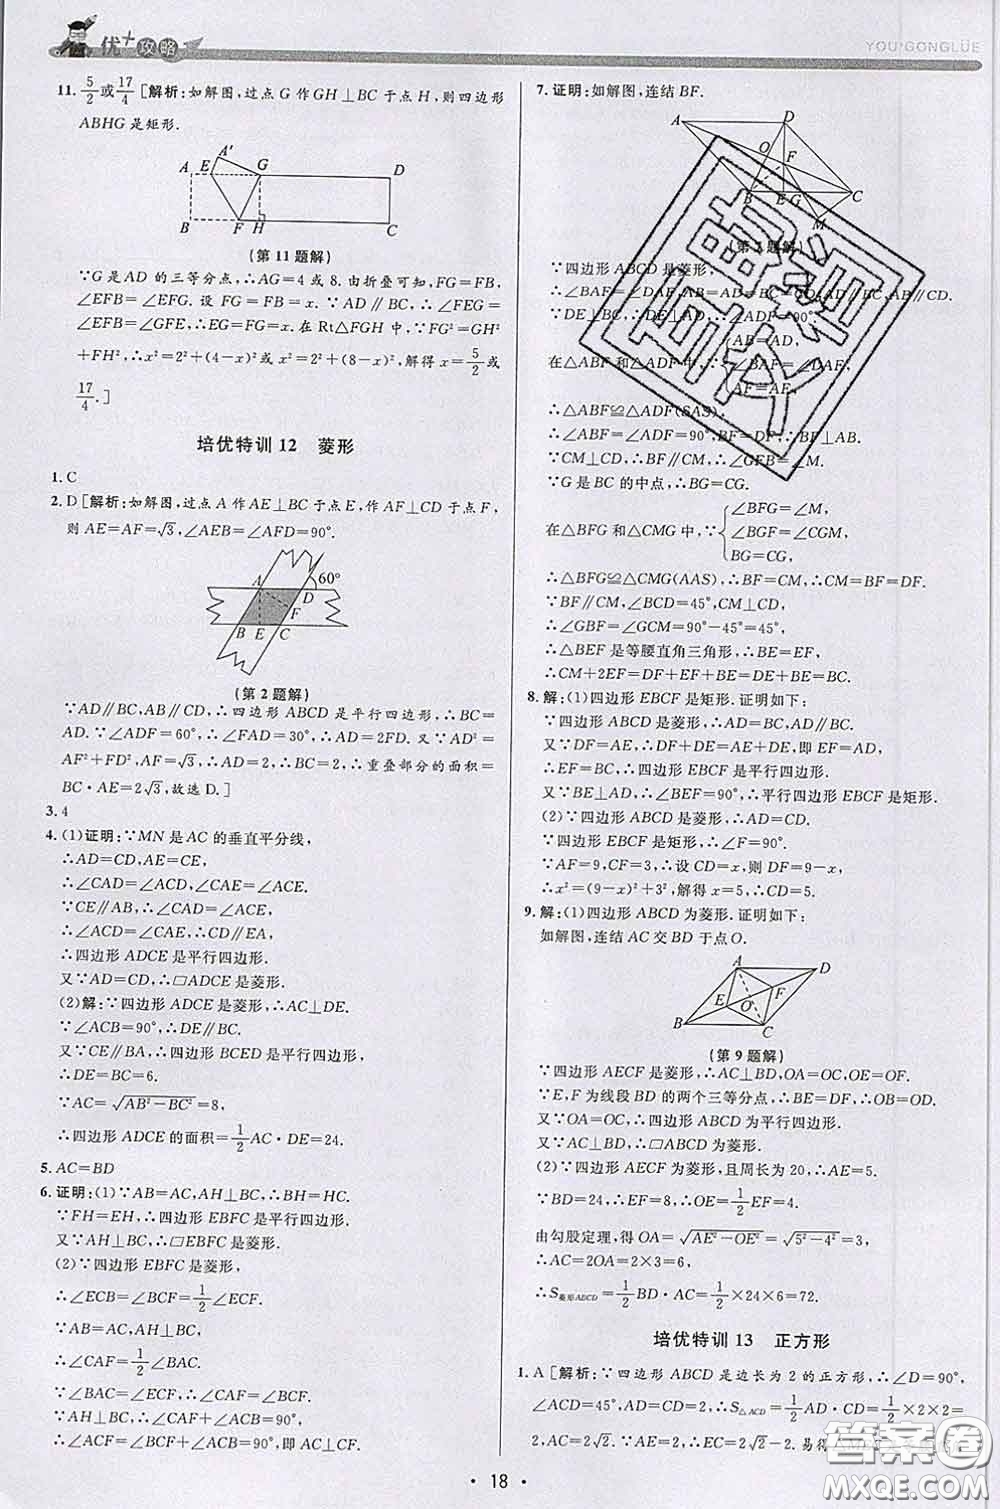 优+攻略
YOU+GONGLÜE
11. 5/2或17/4 [解析:如解图,过点 G 作 GH⊥BC 于点 H,则四边形
ABHG 是矩形.
A' A E G D B F H C
(第 11 题解)
∵G 是 AD 的三等分点,∴AG=4 或 8.由折叠可知,FG=FB,
∠EFB=∠EFG. 设 FG=FB=x. ∵AD∥BC,∴∠FEG=
∠EFB=∠GFE,∴EG=FG=x.在 Rt△FGH 中,∵FG²=GH²
+FH²,∴x²=2²+(4-x)²或 x²=2²+(8-x)²,解得 x=5/2或
17/4.]
培优特训 12 菱形
1. C
2. D[解析:如解图,过点 A 作 AE⊥BC 于点 E,作 AF⊥CD 于点 F,
则 AE=AF=√3,∠AEB=∠AFD=90°.
A 60° D F B E C
(第 2 题解)
∵AD∥BC,AB∥CD,∴四边形 ABCD 是平行四边形,∴BC=
AD.∵∠ADF=60°,∴∠FAD=30°,∴AD=2FD. 又∵AD²=
AF²+FD²,AF=√3,∴AD=2,∴BC=2,∴重叠部分的面积=
BC·AE=2√3,故选 D.]
3. 4
4. (1)证明:∵MN 是 AC 的垂直平分线,
∴AD=CD,AE=CE,
∴∠CAD=∠ACD,∠CAE=∠ACE.
∵CE∥AB,∴∠CAD=∠ACE,
∴∠ACD=∠CAE,∴CD∥EA,
∴四边形 ADCE 是平行四边形.
又∵AD=CD,∴□ADCE 是菱形.
(2)解:∵四边形 ADCE 是菱形,∴AC⊥DE.
∵∠ACB=90°,∴DE∥BC.
又∵CE∥BA,∴四边形 BCED 是平行四边形,
∴DE=BC=6.
∵AC=√AB²-BC²=8,
∴四边形 ADCE 的面积=1/2AC·DE=24.
5. AC=BD
6. 证明:(1)∵AB=AC,AH⊥BC,∴BH=HC.
∵FH=EH,∴四边形 EBFC 是平行四边形.
又∵AH⊥BC,∴□EBFC 是菱形.
(2)∵四边形 EBFC 是菱形,
∴∠ECB=∠BCF=1/2∠ECF.
∵AB=AC,AH⊥BC,
∴∠CAF=1/2∠BAC.
∵∠BAC=∠ECF,∴∠CAF=∠BCF.
∵AH⊥BC,∴∠CAF+∠ACB=90°,
∴∠BCF+∠ACB=90°,即 AC⊥CF.
7. 证明:如解图,连结 BF.
A D O F B E G C M
∵四边形 ABCD 是菱形,
∵DE⊥BC,
在△ABF 和△ADF 中,∵
∠BAF=∠DAF,
AF=AF,
∴△ABF≌△ADF(SAS),
∵CM⊥CD,
∵G 是 BC 的中点,∴BG=CG.
在△BFG 和△CMG 中,∵
∠BFG=∠M,
∠BGF=∠CGM,
BG=CG,
∴△BFG≌△CMG(AAS),∴BF=CM,∴CM=BF=DF.
∵BF∥CM,∠BCD=45°,CM⊥CD,
∴∠GBF=∠GCM=90°-45°=45°,
∴△BEF 是等腰直角三角形,∴BE=EF,
∴CM+2EF=DF+EF+EF=DE+BE=BC.
8. 解:(1)四边形 EBCF 是矩形.证明如下:
∵四边形 ABCD 是菱形,∴AD=BC,AD∥BC.
又∵DF=AE,∴DF+DE=AE+DE,即 EF=AD,
∴EF=BC,∴四边形 EBCF 是平行四边形.
又∵BE⊥AD,∴∠BEF=90°,∴平行四边形 EBCF 是矩形.
(2)∵四边形 ABCD 是菱形,∴AD=CD.
∵四边形 EBCF 是矩形,∴∠F=90°.
∵AF=9,CF=3,∴设 CD=x,则 DF=9-x,
∴x²=(9-x)²+3²,解得 x=5,∴CD=5.
9. 解:(1)四边形 ABCD 为菱形.证明如下:
如解图,连结 AC 交 BD 于点 O.
A D E O F B C
(第 9 题解)
∵四边形 AECF 是菱形,∴AC⊥BD,OA=OC,OE=OF.
∵E,F 为线段 BD 的两个三等分点,∴BE=DF,∴OB=OD.
又∵OA=OC,∴四边形 ABCD 为平行四边形.
又∵AC⊥BD,∴□ABCD 为菱形.
(2)∵四边形 AECF 为菱形,且周长为 20,∴AE=5.
∵BD=24,∴EF=8,∴OE=1/2EF=4.
由勾股定理,得 OA=√AE²-OE²=√5²-4²=3,
∴AC=2OA=2×3=6,
∴S菱形ABCD=1/2BD·AC=1/2×24×6=72.
培优特训 13 正方形
1. A [解析:∵四边形 ABCD 是边长为 2 的正方形,∴∠D=90°,
∠ACD=45°,AD=CD=2,∴S△ACD=1/2AD·CD=1/2×2×2=
2,AC=2√2.∵EC=2,∴AE=2√2-2.易得
· 18 ·
答案圈
MXQE.COM